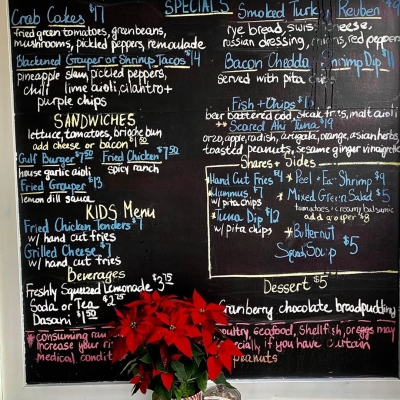 SPECIALS
Crab Cakes $17
fried green tomatoes, green beans,
mushrooms, pickled peppers, remoulade
Blackened Grouper or Shrimp Tacos $14
pineapple slaw, pickled peppers,
chili lime aioli, cilantro +
purple chips
SANDWICHES
lettuce, tomatoes, brioche bun
add cheese or bacon $1.50
Gulf Burger $7.50 Fried Chicken $7.50
house garlic aioli spicy ranch
Fried Grouper $13
lemon dill sauce
KIDS Menu
Fried Chicken Tenders
w/ hand cut fries
Grilled Cheese $7
w/ hand cut fries
Beverages
Freshly Squeezed Lemonade $3.75
Soda or Tea $2.75
Dasani $1.50
*consuming
increase your
medical
Smoked Turk Reuben $9
rye bread, swiss cheese,
russian dressing, red peppers
Bacon Chedda Shrimp Dip $11
served with pita
Fish + Chips
beer battered cod, steak fries, malt aioli
** Seared Ahi Tuna $19
orzo, apple, radish, arugala, orange, asian herbs,
toasted peanuts, sesame ginger vinaigrette
Shares + Sides
Hand Cut Fries $4 * Peel + Eat Shrimp $9
Hummus $7 * Mixed Green Salad $5
w/ pita chips tomatoes + creamy balsamic
*Tuna Dip $12 add grouper $8
w/ pita chips *Butternut
Squash Soup $5
Dessert $5
Cranberry chocolate breadpudding
poultry, seafood, shellfish, or eggs may
if you have certain